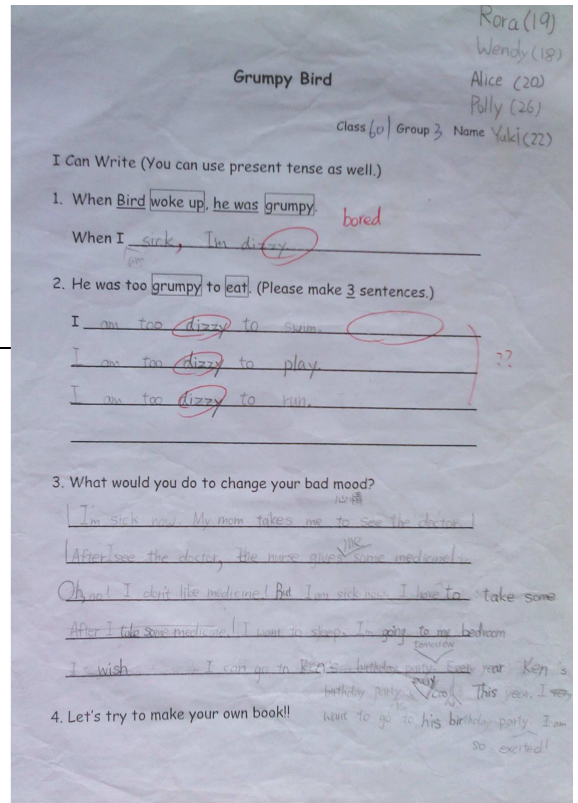 Rora (19)
Wendy (18)
Alice (20)
Polly (26)
Grumpy Bird
Class 601 Group 3 Name Yuki (22)
I Can Write (You can use present tense as well.)
1. When Bird woke up, he was grumpy.
bored
When I sick, I'm dizzy
am
2. He was too grumpy to eat. (Please make 3 sentences.)
I am too dizzy to swim.
I am too dizzy to play.
I am too dizzy to run.
??
3. What would you do to change your bad mood?
心情
I'm sick now. My mom takes me to see the doctor.
me
After I see the doctor, the nurse gives some medicine!
Oh, no! I don't like medicine! But I am sick now. I have to take some
After I take some medicine! I want to sleep. I'm going to my bedroom
tomorrow
I wish I can go to Ken's birthday party. Every year Ken's
birthday party cool. This year, I
4. Let's try to make your own book!!
want to go to his birthday party I am
so excited!